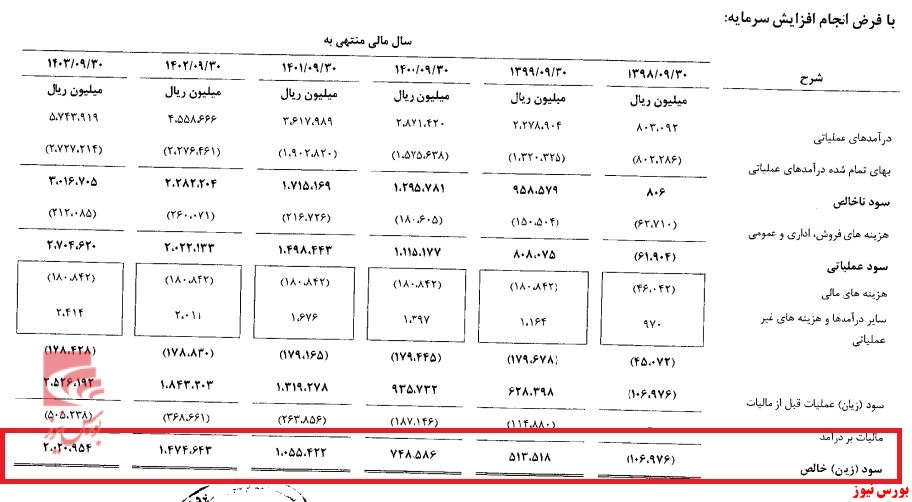 با فرض انجام افزایش سرمایه:
سال مالی منتهی به
شرح ۱۳۹۸/۰۹/۳۰ ۱۳۹۹/۰۹/۳۰ ۱۴۰۰/۰۹/۳۰ ۱۴۰۱/۰۹/۳۰ ۱۴۰۲/۰۹/۳۰ ۱۴۰۳/۰۹/۳۰
میلیون ریال میلیون ریال میلیون ریال میلیون ریال میلیون ریال میلیون ریال
درآمدهای عملیاتی ۸۰۳.۰۹۲ ۲.۲۷۸.۹۰۴ ۲.۸۷۱.۴۲۰ ۳.۶۱۷.۹۸۹ ۴.۵۵۸.۶۶۶ ۵.۷۴۳.۹۱۹
بهای تمام شده درآمدهای عملیاتی (۸۰۲.۲۸۶) (۱.۳۲۰.۳۲۵) (۱.۵۷۵.۶۳۸) (۱.۹۰۲.۸۲۰) (۲.۲۷۶.۴۶۱) (۲.۷۲۷.۲۱۴)
سود ناخالص ۸۰۶ ۹۵۸.۵۷۹ ۱.۲۹۵.۷۸۱ ۱.۷۱۵.۱۶۹ ۲.۲۸۲.۲۰۴ ۳.۰۱۶.۷۰۵
هزینه های فروش، اداری و عمومی (۶۲.۷۱۰) (۱۵۰.۵۰۴) (۱۸۰.۶۰۵) (۲۱۶.۷۲۶) (۲۶۰.۰۷۱) (۳۱۲.۰۸۵)
سود عملیاتی (۶۱.۹۰۴) ۸۰۸.۰۷۵ ۱.۱۱۵.۱۷۷ ۱.۴۹۸.۴۴۳ ۲.۰۲۲.۱۳۳ ۲.۷۰۴.۶۲۰
هزینه های مالی (۴۶.۰۴۲) (۱۸۰.۸۴۲) (۱۸۰.۸۴۲) (۱۸۰.۸۴۲) (۱۸۰.۸۴۲) (۱۸۰.۸۴۲)
سایر درآمدها و هزینه های غیر عملیاتی ۹۷۰ ۱.۱۶۴ ۱.۳۹۷ ۱.۶۷۶ ۲.۰۱۱ ۲.۴۱۴
(۴۵.۰۷۲) (۱۷۹.۶۷۸) (۱۷۹.۴۴۵) (۱۷۹.۱۶۵) (۱۷۸.۸۳۰) (۱۷۸.۴۲۸)
سود (زیان) عملیات قبل از مالیات (۱۰۶.۹۷۶) ۶۲۸.۳۹۸ ۹۳۵.۷۳۲ ۱.۳۱۹.۲۷۸ ۱.۸۴۳.۳۰۳ ۲.۵۲۶.۱۹۲
مالیات بر درآمد - (۱۱۴.۸۸۰) (۱۸۷.۱۴۶) (۲۶۳.۸۵۶) (۳۶۸.۶۶۱) (۵۰۵.۲۳۸)
سود (زیان) خالص (۱۰۶.۹۷۶) ۵۱۳.۵۱۸ ۷۴۸.۵۸۶ ۱.۰۵۵.۴۲۲ ۱.۴۷۴.۶۴۳ ۲.۰۲۰.۹۵۴
بورس نیوز
بورس نیوز